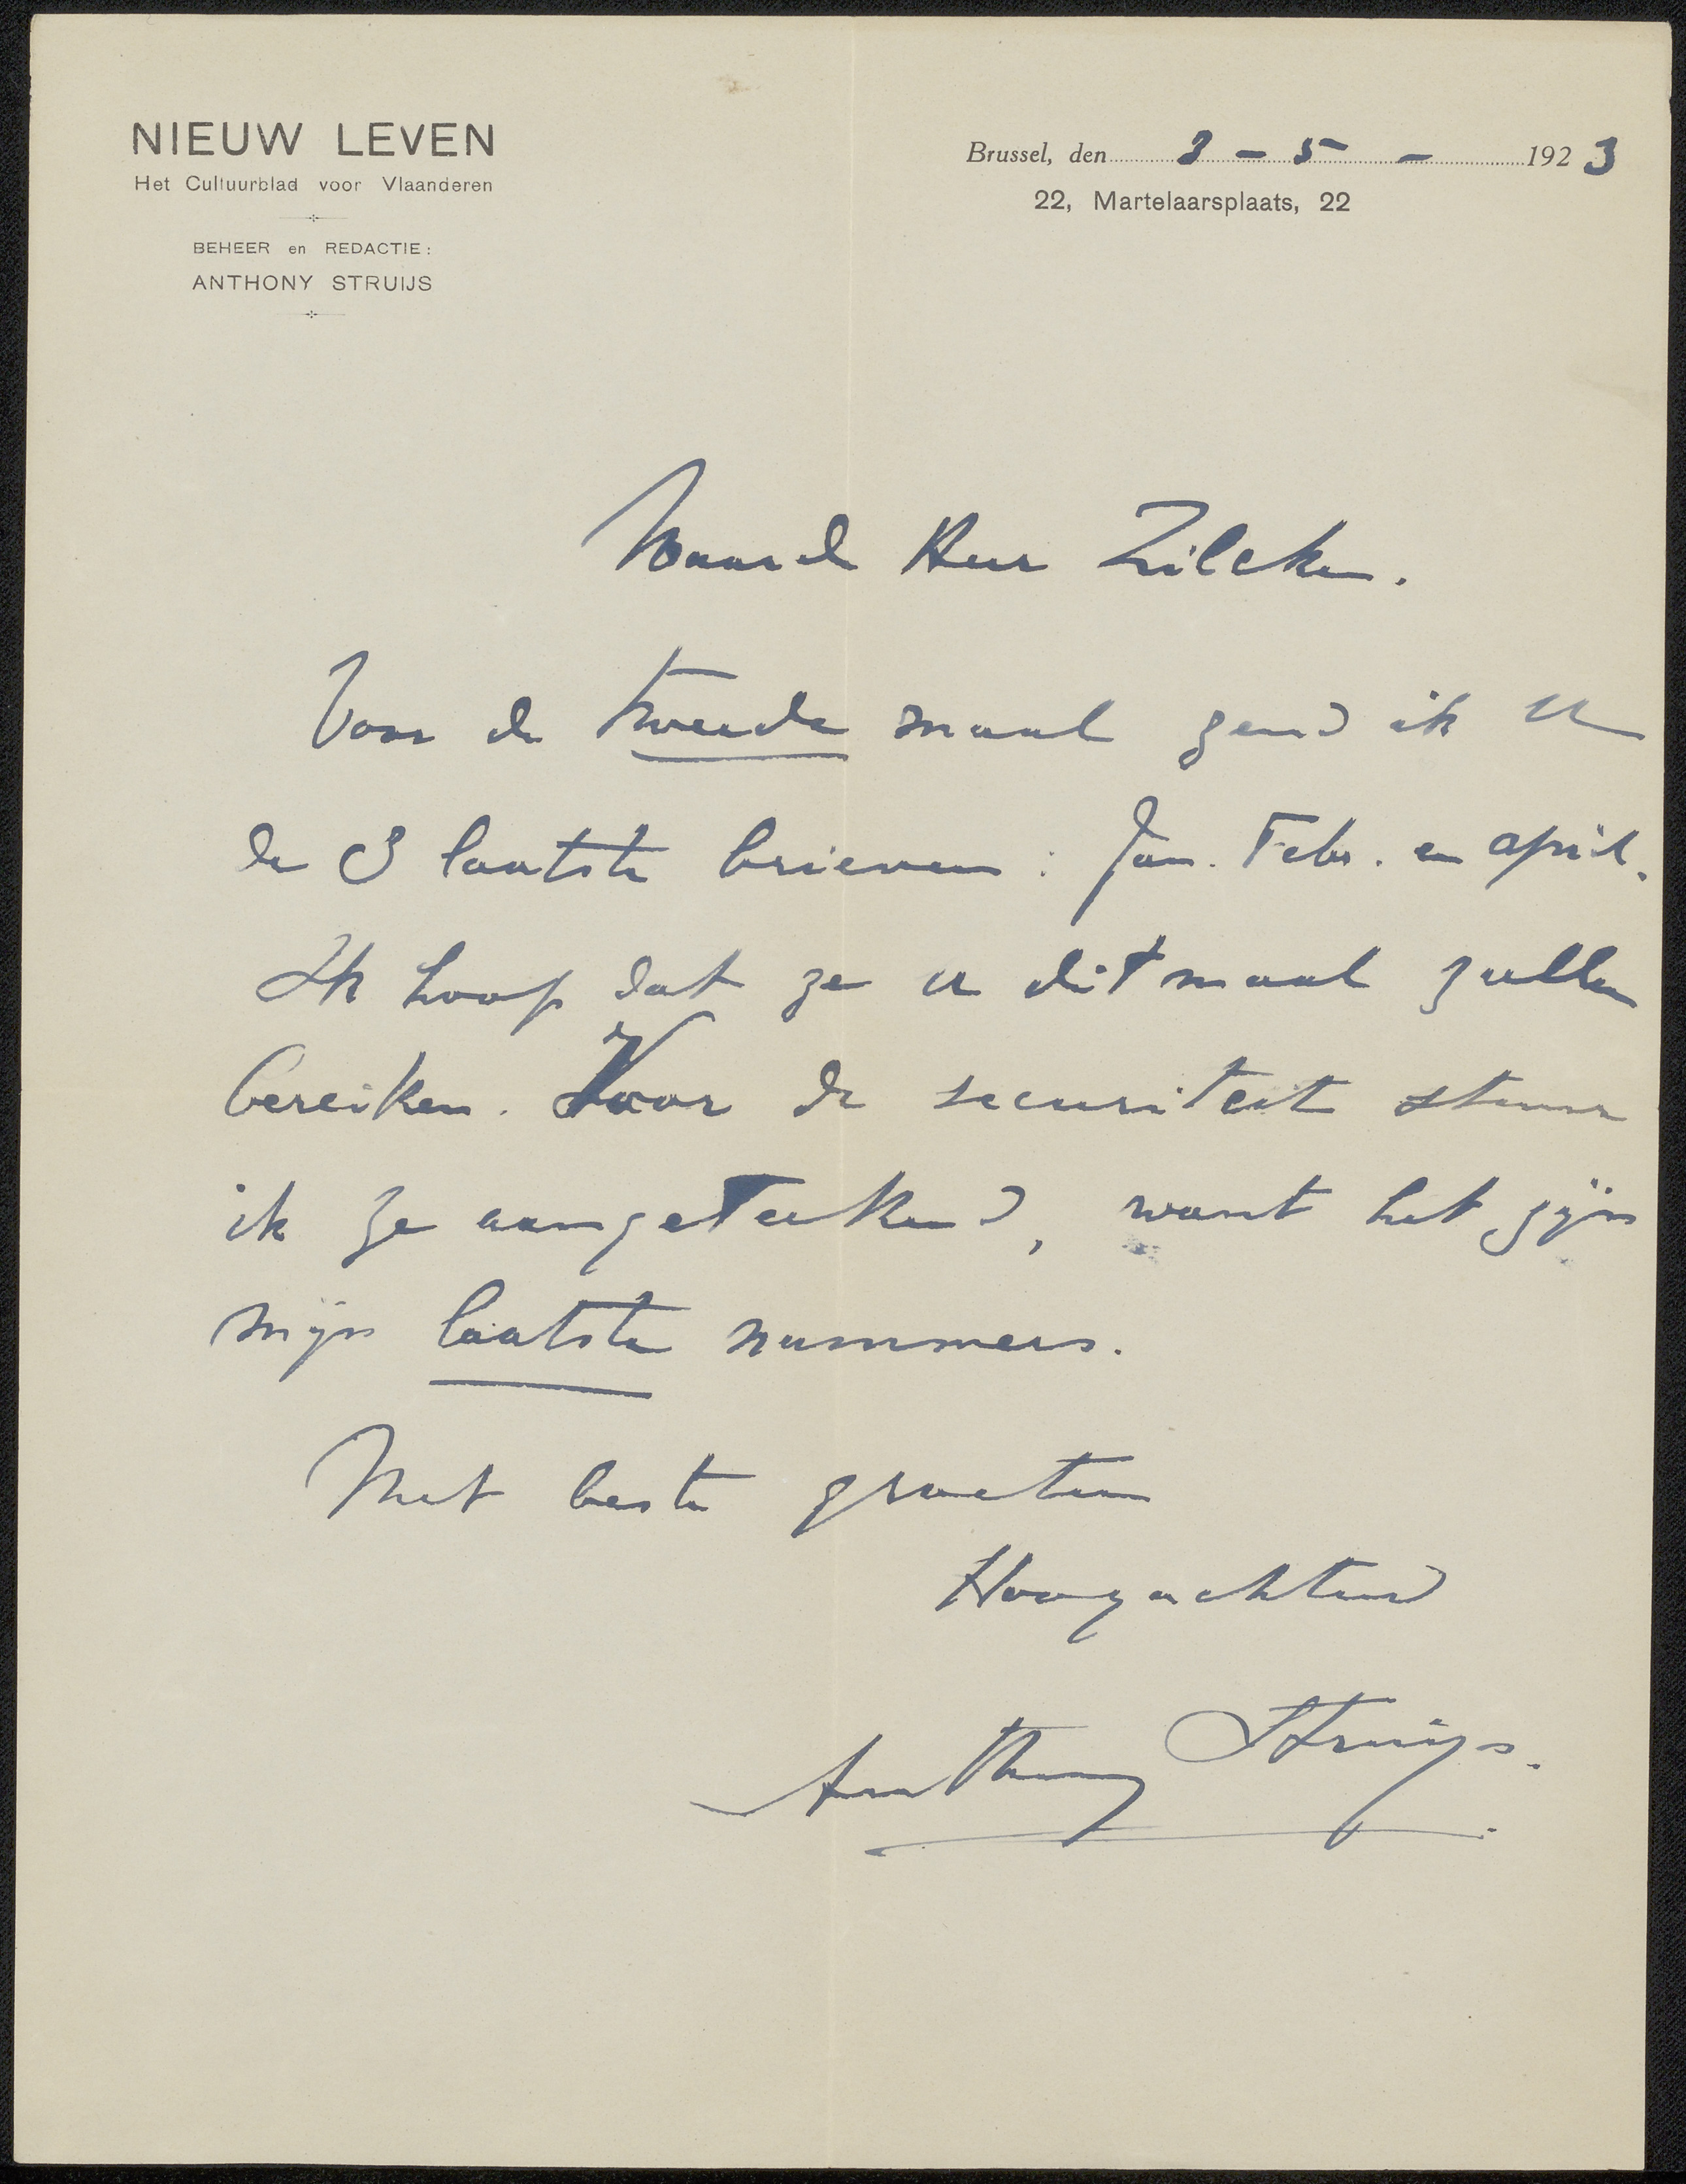 NIEUW LEVEN
Het Cultuurblad voor Vlaanderen
BEHEER en REDACTIE:
ANTHONY STRUIJS
Brussel, den 3 - 5 - 1923
22, Martelaarsplaats, 22
Waarde Heer Zilcken.
Voor de tweede maal zend ik U
de 3 laatste brieven : Jan. Febr. en april.
Ik hoop dat ze u ditmaal zullen
bereiken. Voor de securiteit stuur
ik ze aangeteekend, want het zijn
mijn laatste nummers.
Met beste groeten
Hoogachtend
Anthony Struijs.